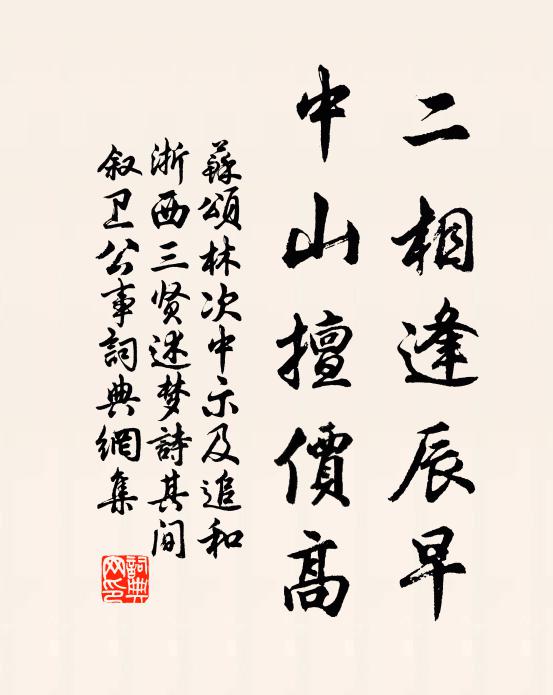 二相逢辰早
中山擅價高
蘇頌林次中示及追和
浙西三贤述梦詩其间
叙卫公事詞典網集
詞典网印